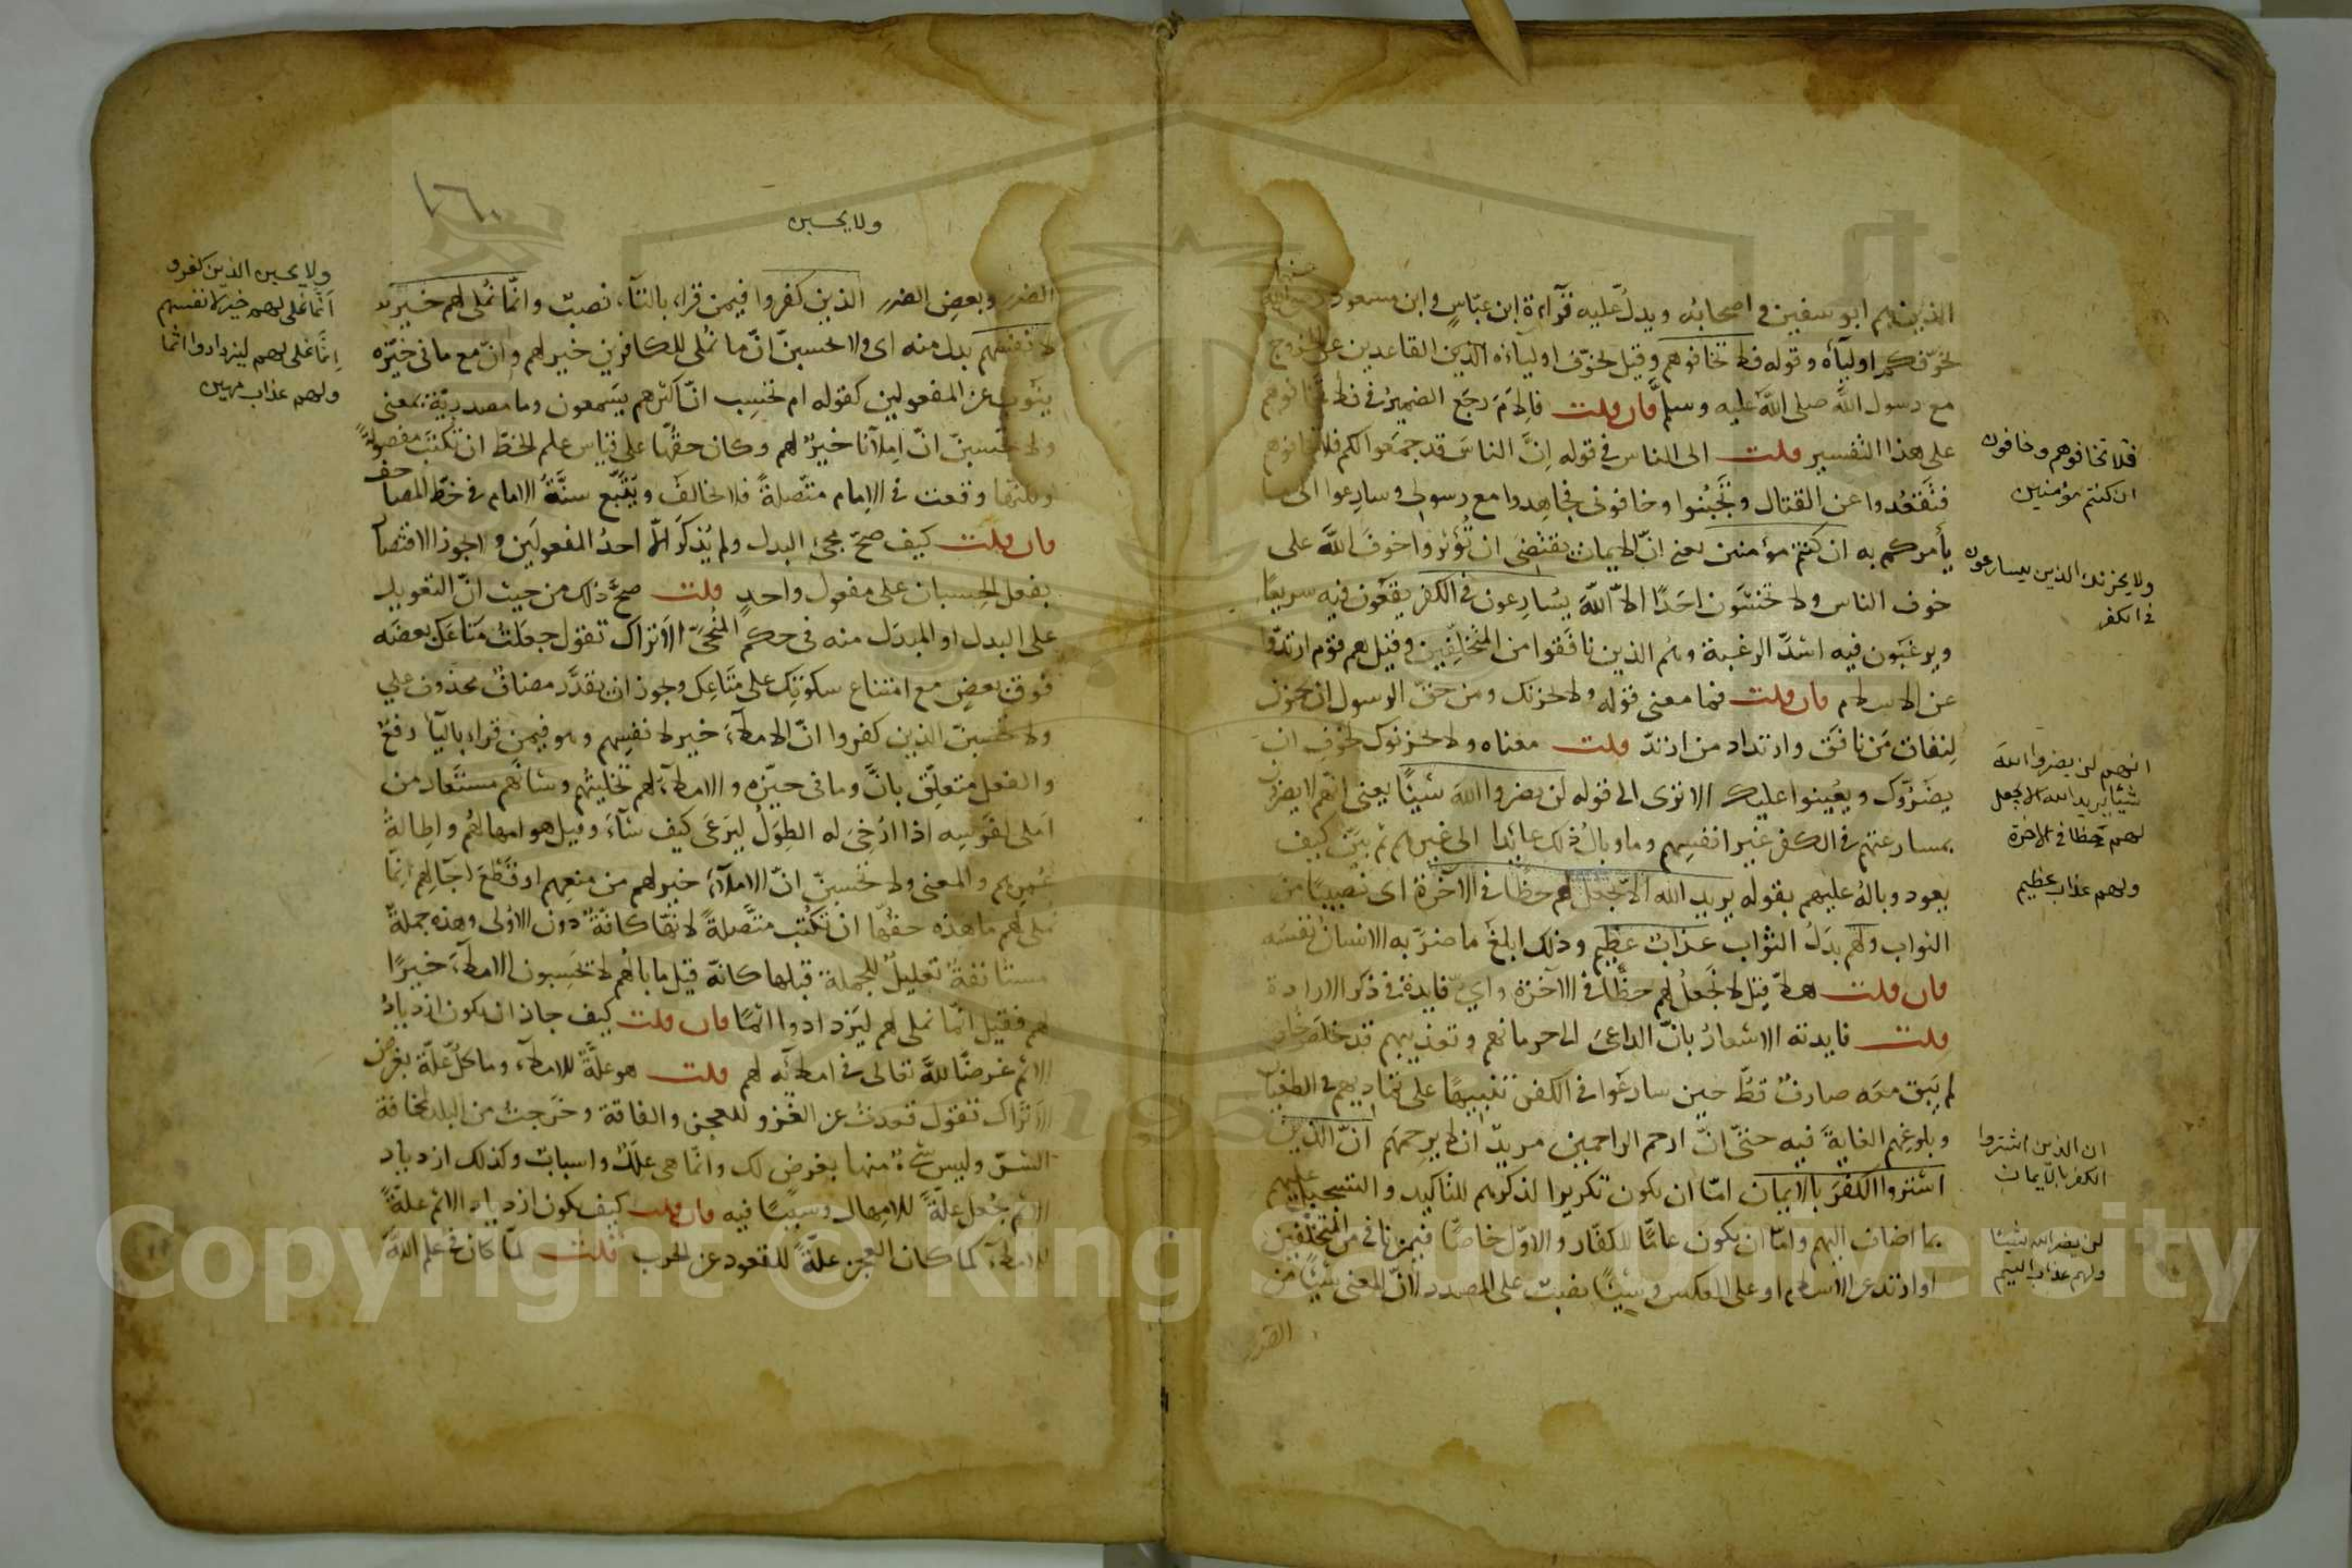 الذين هم ابو سفين و اصحابه ويدلّ عليه قرآءة ابن عبّاسٍ و ابن مسعود
يخوّفكم اوليآءه وقوله فلا تخافوهم وقيل يخوّف اولياءه الذين القاعدين عن الخروج
مع رسول اللّه صلى اللّه عليه وسلم فان قلت فالامَ رجع الضمير في فلا تخافوهم
على هذا التفسير قلت الى الناس في قوله انّ الناسَ قد جمعوا لكم فلا تخافوهم
فتقعُدوا عن القتال وتجبُنوا وخافوني فجاهِدوا مع رسولي وسارِعوا الى ما
يأمركم به ان كنتم مؤمنين يعني انّ الايمان يقتضي ان تُؤثروا خوفَ اللّه على
خوف الناس ولا تخشون احَدًا الّا اللّه يسارعون في الكفر يقعون فيه سريعًا
ويرغبون فيه اشدَّ الرغبة وهُم الذين نافقوا من المتخلّفين وقيل هم قوم ارتدّوا
عن الاسلام فان قلت فما معنى قوله ولا يحزنك ومن حقّ الرسول ان يحزن
لنفاق مَن نافَقَ وارتداد من ارتدّ قلت معناه ولا يحزنوك لخوفِ ان
يضرّوك ويُعينوا عليك الا ترى الى قوله لن يضروا اللهَ شيئًا يعني انّهم لا يضرّون
بمسارعتهم في الكفر غير انفسِهم وما وبالُ ذلك عايدًا الى غيرهم ثم بيَّن كيف
يعود وبالهُ عليهم بقوله يريد الله الّا يجعل لهم حظًّا في الآخرة اى نصيبًا من
الثواب ولهم بدَلُ الثّواب عذابٌ عظيم وذلك ابلغ ما ضرّ به الانسان نفسَه
فان قلت هلّا قيل لا يجعلُ لهم حظًّا في الآخرة وايُّ فايدة في ذكر الارادة
قلت فايدته الاشعارُ بانّ الداعىَ الى حرمانهم وتعذيبهم قد خلصَ خلوصًا
لم يَبق معَه صارفٌ قطُّ حين سارعَوا في الكفر تنبيهًا على تماديهم في الطغيان
وبلوغِهم الغايةَ فيه حتّى انّ ارحم الراحمين مريدٌ ان لا يرحمَهم انّ الذين
اشتروا الكفرَ بالايمان امّا ان يكون تكريرا لذكرهم للتأكيد والتسجيل عليهم
بما اضاف اليهم وامّا ان يكون عامًّا للكفّار والاوّل خاصًّا فيمن نافق من المتخلّفين
او ارتد عن الاسلام او على العكس وشيئًا نصبٌ على المصدر لانّ المعنى شيئًا من
الضرر
فلا تخافوهم وخافون
ان كنتم مؤمنين
ولا يحزنك الذين يسارعون
في الكفر
انهم لن يضروا الله
شيئا يريد الله الا يجعل
لهم حظا في الآخرة
ولهم عذاب عظيم
ان الذين اشتروا
الكفر بالايمان
لن يضروا الله شيئا
ولهم عذاب اليم
١٦٠
ولا يحسبن
الضرر وبعضِ الضرر الذين كفروا فيمن قراء بالتآء نصبٌ وانّما نُملى لهم خيرٌ
لانفسهم بدل منه اى ولا تحسبنّ انّ ما نُملى للكافرين خير لهم وانّ مع ما في حيّزه
ينوب عن المفعولين كقوله ام تحسب انّ اكثرهم يسمعون وما مصدريّة بمعنى
ولا تحسبنّ انّ املآنا خيرٌ لهم وكان حقّها على قياس علم الخطّ ان تُكتبَ مفصولةً
ولكنّها وقعت في الامام متّصلةً فلا تخالَف ويُتّبع سنّةُ الامام في خطّ المصاحف
فان قلت كيف صحّ مجئ البدل ولم يُذكر الّا احدُ المفعولَين ولا يجوز الاقتصار
بفعل الحِسبان على مفعول واحدٍ قلت صحَّ ذلك من حيث انّ التعويل
على البدل او المبدَل منه في حكم المُنحّى الا تراك تقول جعلتُ متاعَك بعضَه
فوق بعضٍ مع امتناع سكوتك على متاعِك ويجوز ان يقدّر مضافٌ محذوف على
ولا تحسبنّ الذين كفروا انّ الاملآء خير لانفسهم وهو فيمن قراء باليآء رفعٌ
والفعل متعلّق بانَّ وما في حيّزه والاملآء لهم تخليتُهم وشانَهم مستعار من
املى لفرسِه اذا ارْخىَ له الطِوَل ليَرعَى كيف شآءَ وقيل هو امهالهُم واطالةُ
عُمرِهم والمعنى ولا تحسبنّ انّ الاملآءَ خير لهم من منعِهم او قَطعَ آجالِهم انّما
نملى لهم ما هذه حقّها ان تُكتُب متّصلةً لانّها كافّةٌ دون الاُولى وهذه جملةٌ
مستانفةٌ تعليلٌ للجملة قبلها كانّه قيل ما بالُهم لا يحسِبون الاملآءَ خيرًا
لهم فقيل انّما نملى لهم ليَزدادوا اثمًا فان قلت كيف جاز ان يكون ازديادُ
الاثم غرضًا للّه تعالى في املآئه لهم قلت هو علّةٌ للاملآء وما كلّ علّة بغرض
الا تراك تقول قعدتُ عن الغَزو للعجز والفاقة وخرجتُ من البلد لمخافة
الشرّ وليس شئٌ منها بغرض لك وانّما هى عللٌ واسبابٌ وكذلك ازدياد
الاثم جُعل علّةً للامهال وسببًا فيه فان قلت كيف يكون ازدياد الاثم علّةً
للاملآء كما كان العجز علّةً للقعود عن الحرب قلت لمّا كان في علم اللّه
ولا يحسبن الذين كفرو
انما نملى لهم خير لانفسهم
انما نملى لهم ليزدادوا اثما
ولهم عذاب مهين
Copyright © King Saud University
1957